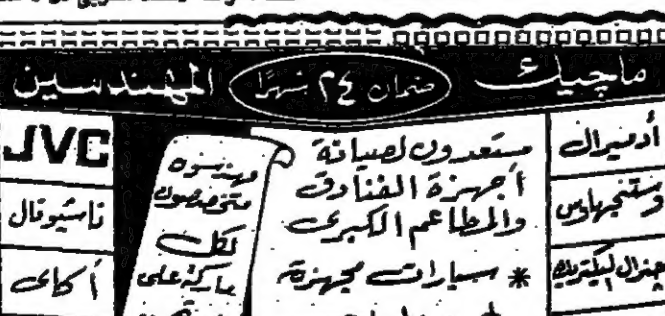 ماجيك ضمان ٢٤ شهرًا المهندسين
أدميرال
وستنجهاوس
جنرال ليكتريك
مستعدون لصيانة
أجهزة الفنادق
والمطاعم الكبرى
* سيارات مجهزة
مهندسون
متخصصون
لكل
ماركة على
JVC
ناشيونال
أكاى